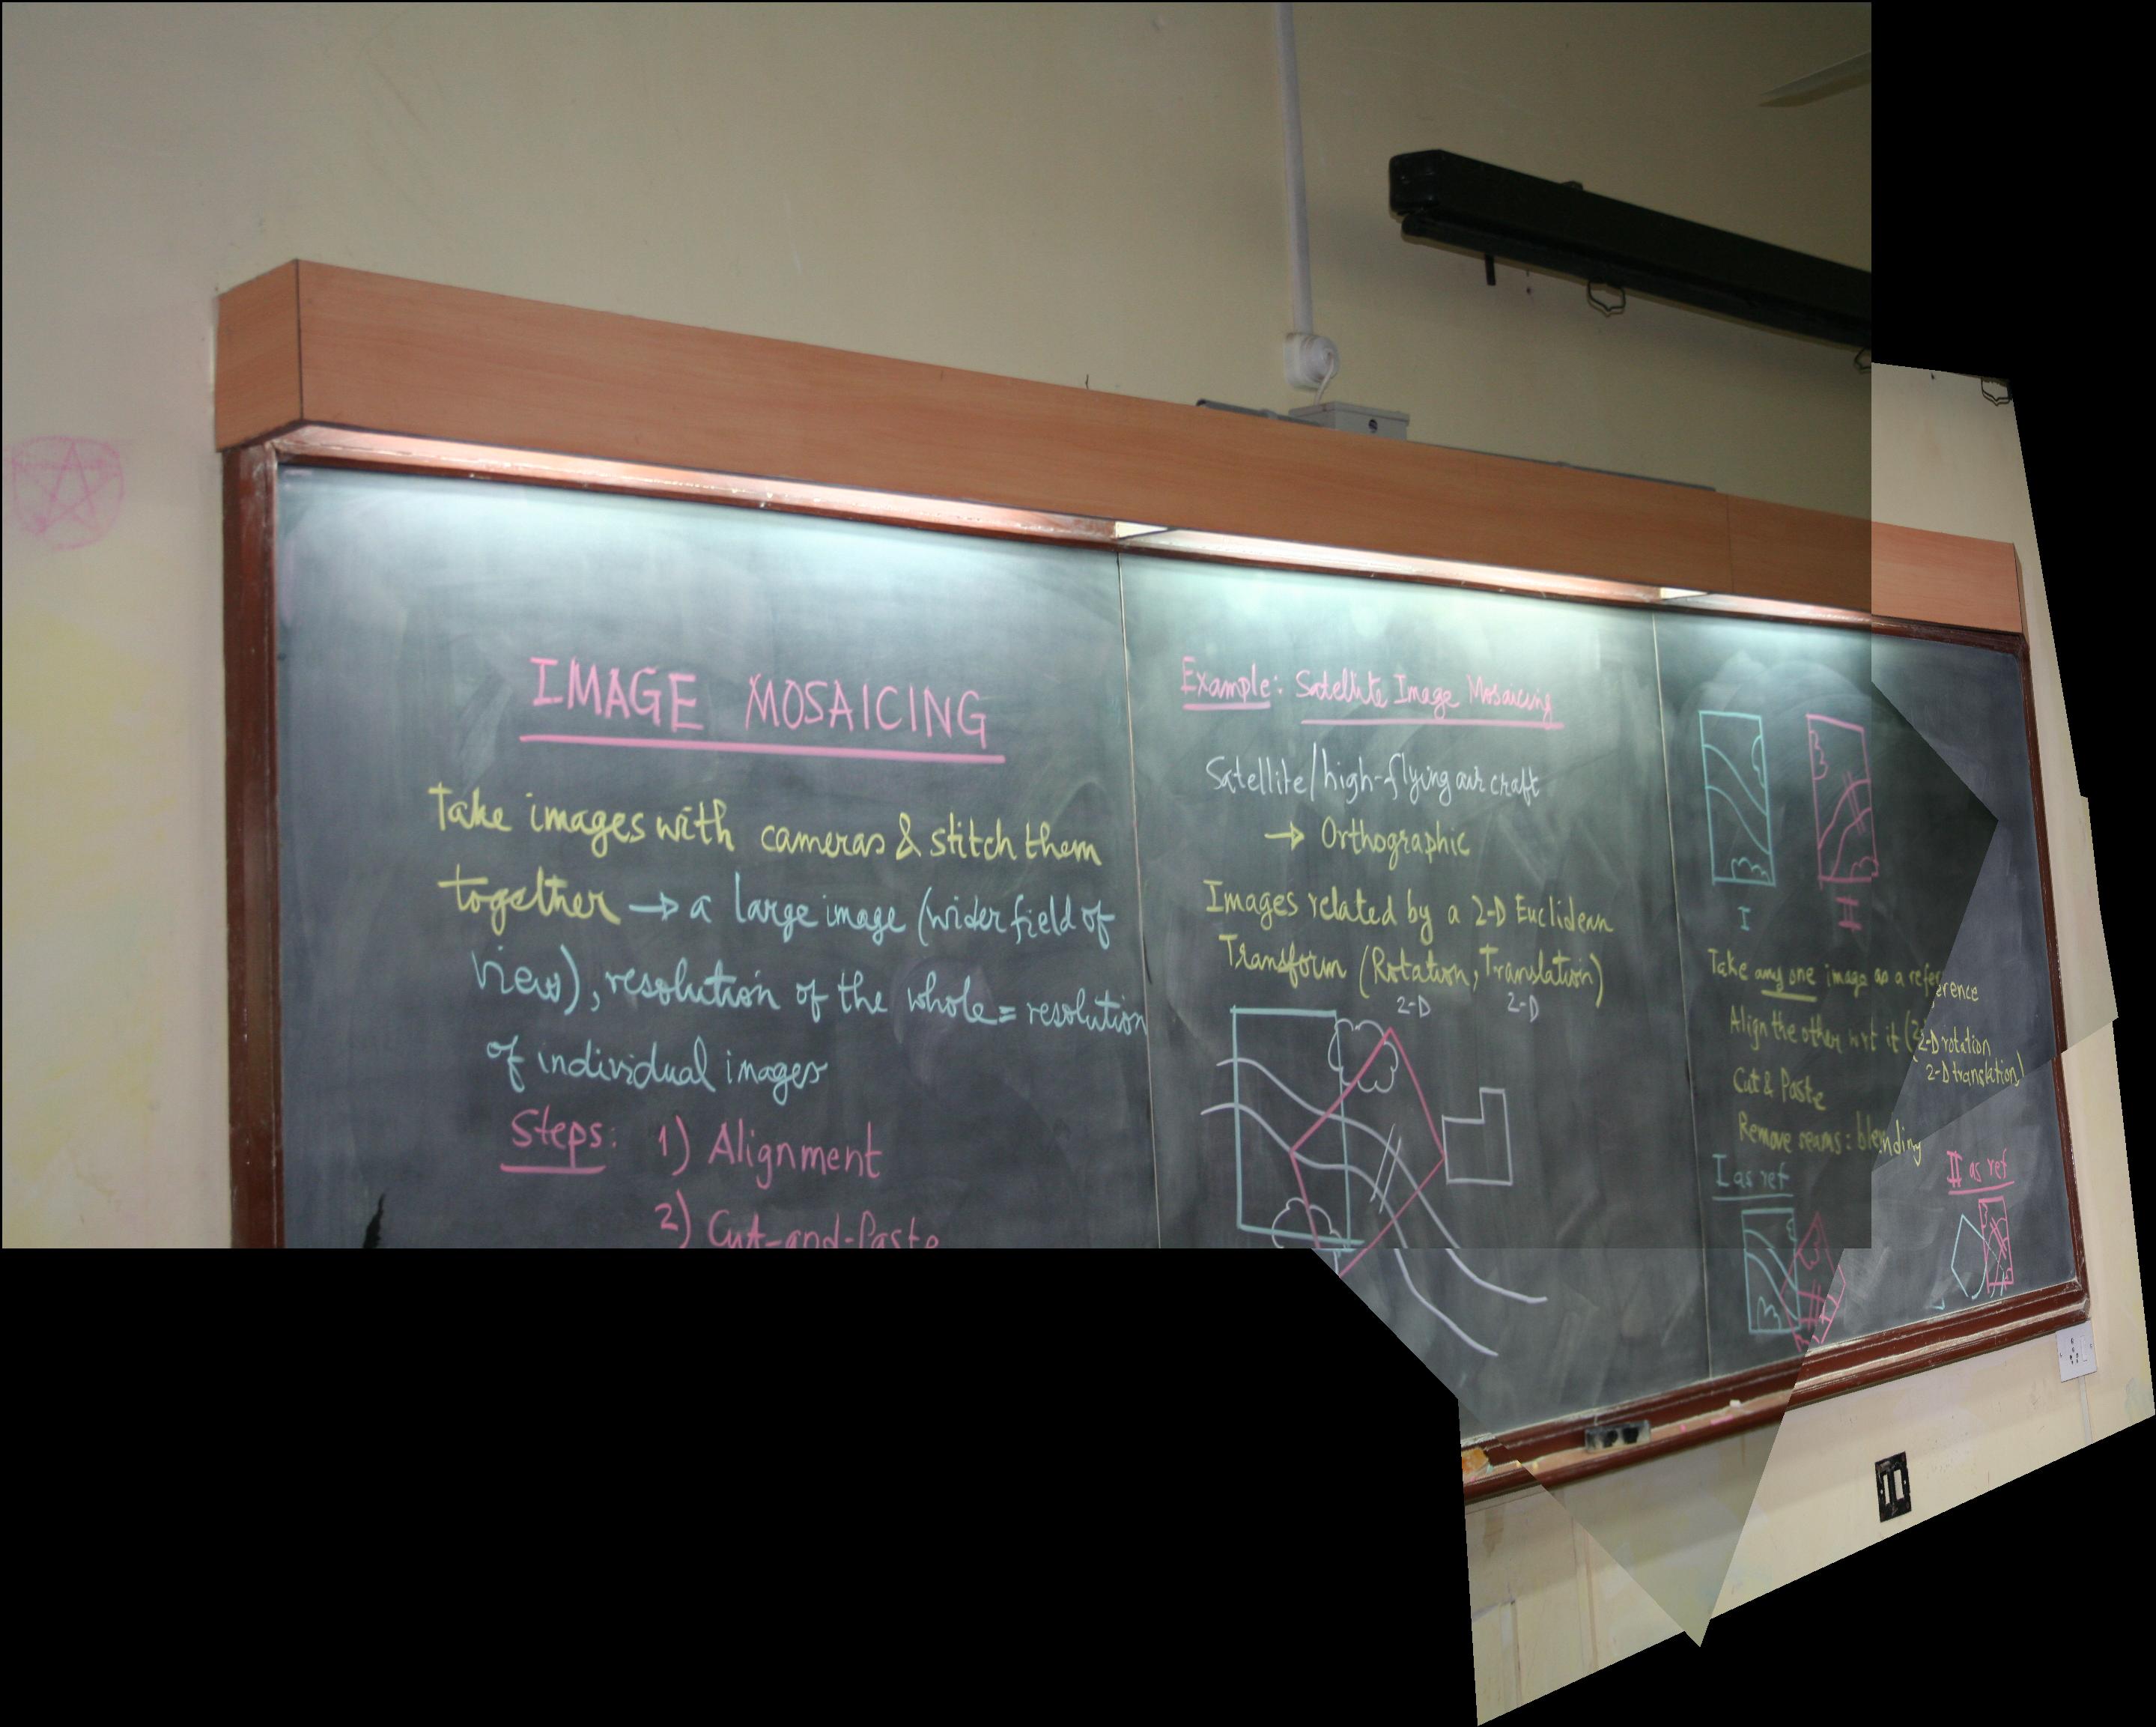 IMAGE MOSAICING
Take images with cameras & stitch them
together → a large image (wider field of
view), resolution of the whole = resolution
of individual images
Steps: 1) Alignment
2) Cut-and-Paste
Example: Satellite Image Mosaicing
Satellite/high-flying aircraft
→ Orthographic
Images related by a 2-D Euclidean
Transform (Rotation, Translation)
2-D 2-D
I II
Take any one image as a reference
Align the other wrt it (2-D rotation
2-D translation)
Cut & Paste
Remove seams: blending
I as ref
II as ref